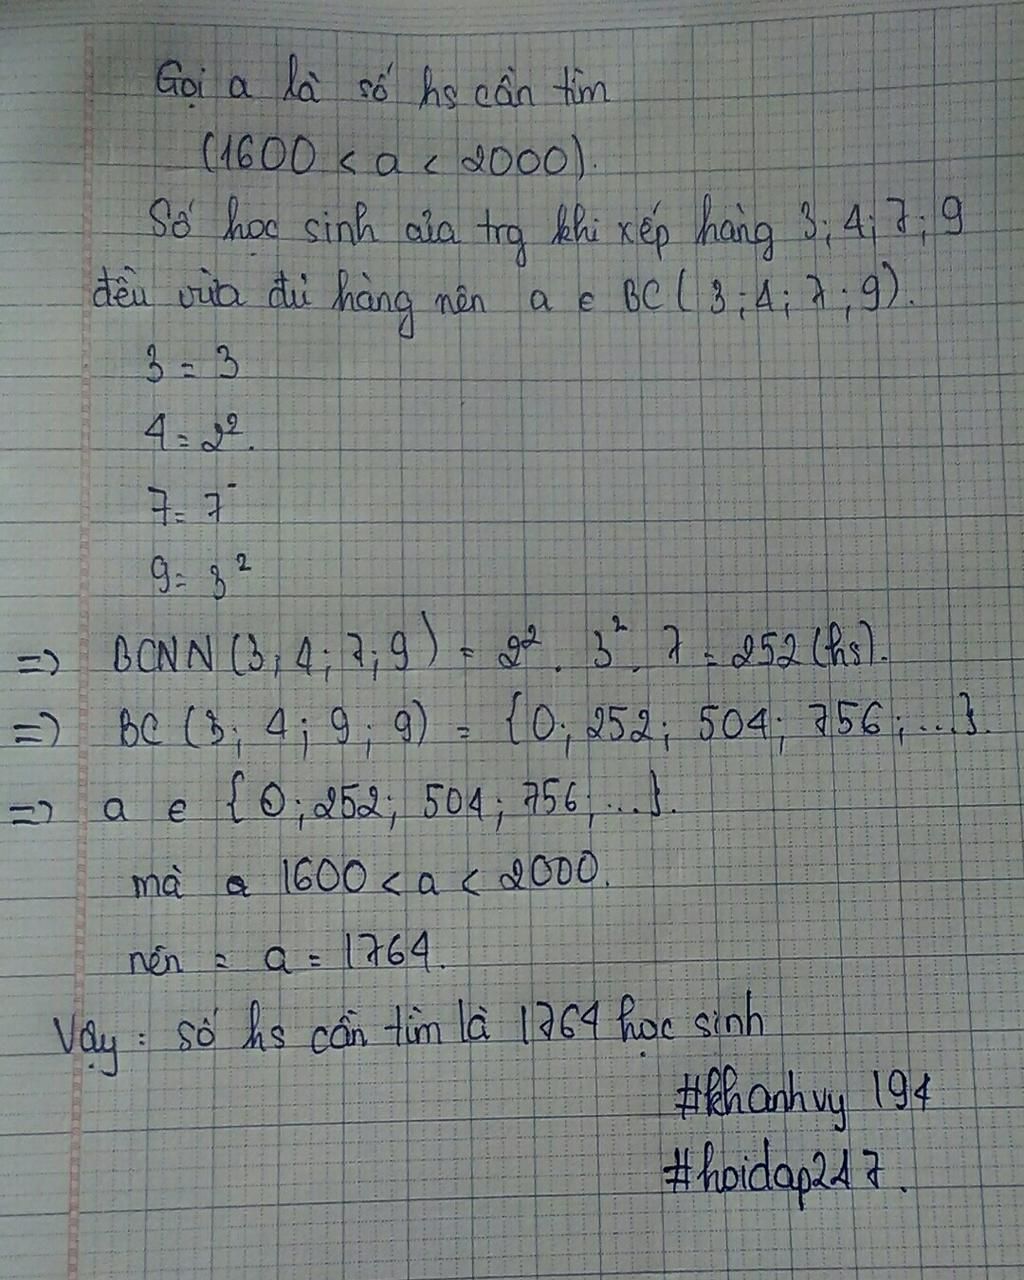 Gọi a là số hs cần tìm
(1600 < a < 2000).
Số học sinh của trg khi xếp hàng 3; 4; 7; 9
đều vừa đủ hàng nên a ∈ BC(3; 4; 7; 9).
3 = 3
4 = 2².
7 = 7
9 = 3²
=> BCNN(3; 4; 7; 9) = 2². 3². 7 = 252 (hs).
=> BC (3; 4; 9; 9) = {0; 252; 504; 756; ...}.
=> a ∈ {0; 252; 504; 756; ...}.
mà a 1600 < a < 2000.
nên = a = 1764.
Vậy : số hs cần tìm là 1764 học sinh
#khanhvy 194
#hoidap247.